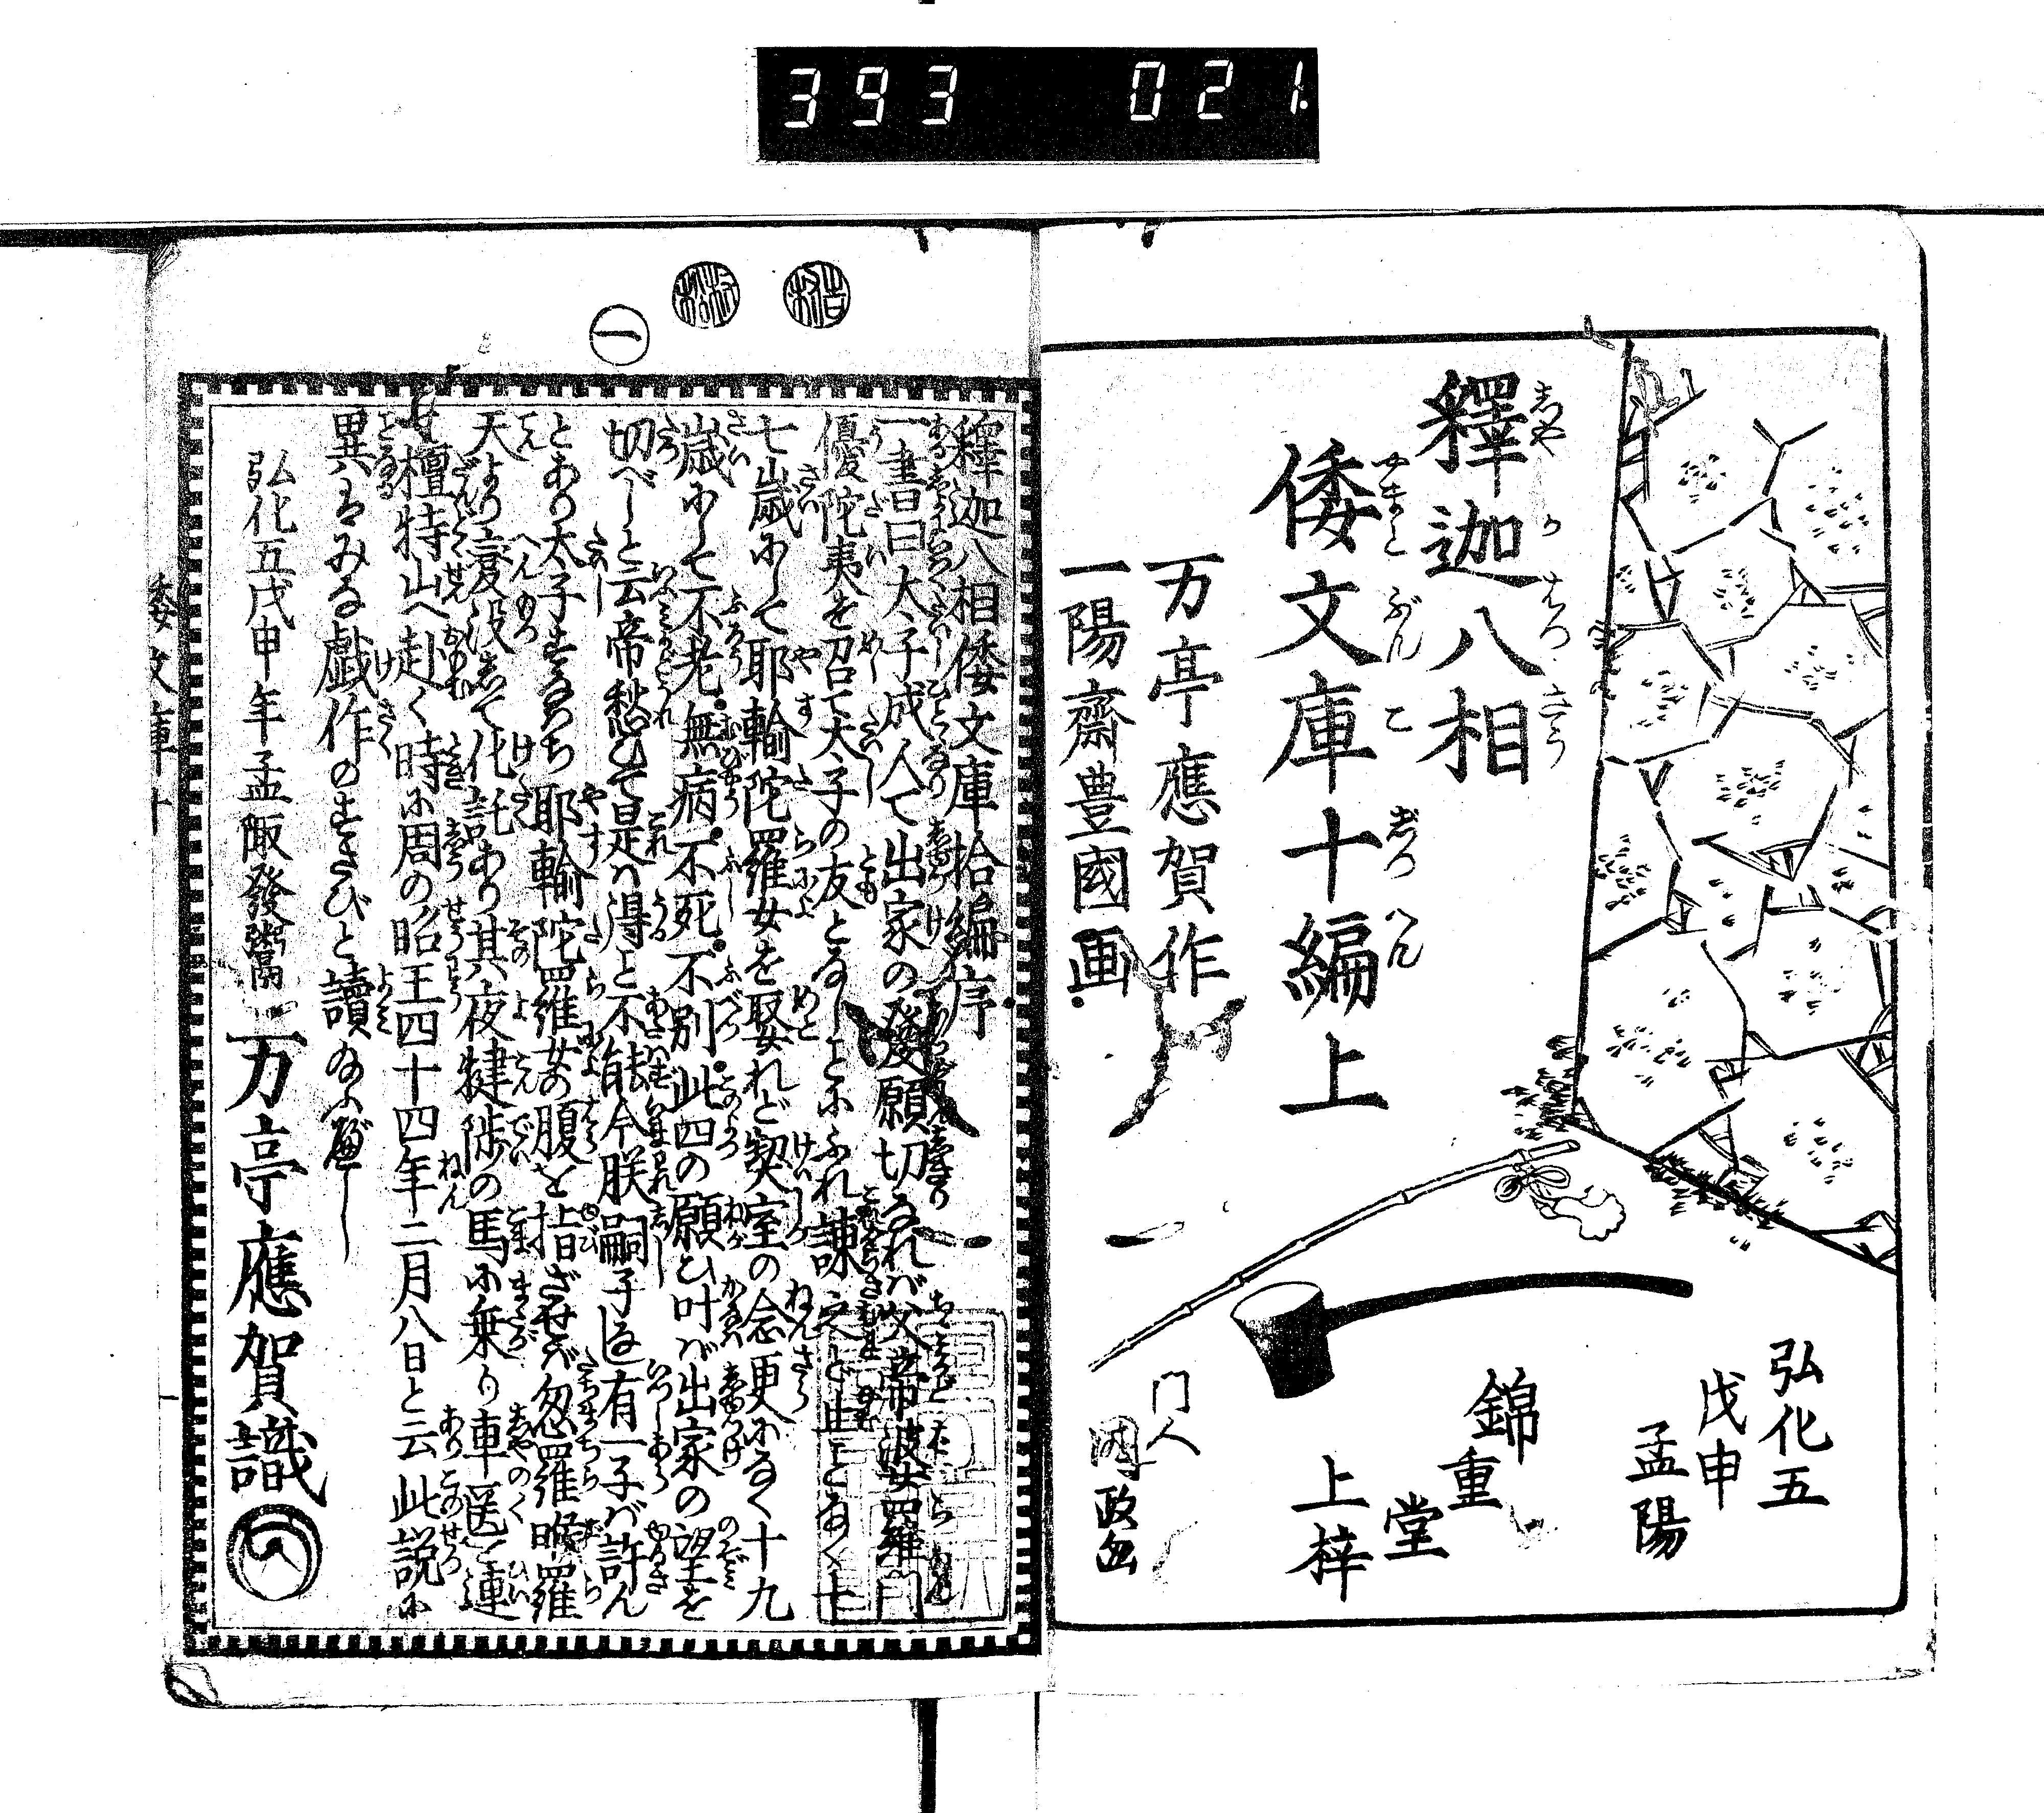 393 021.
釋迦八相
倭文庫十編上
万亭應賀作
一陽齋豊國画
弘化五
戊申
孟陽
錦重堂
上梓
門人
國政画
一
釋迦八相倭文庫拾編序
一書曰太子成人て出家の發願切なれバ父帝波女羅門
優陀夷を召て太子の友となしことにふれ諌之ど止ことなく十
七歳にして耶輸陀羅女を娶れど契室の念更になく十九
歳にして不老無病不死不別此四の願ひ叶バ出家の望を
切べしと云帝愁ひて是ハ得と不能今朕嗣子に有一子バ許ん
とあり太子すなハち耶輸陀羅女の腹を指ざせバ忽羅睺羅
天より変没して化託あり其夜犍陟の馬に乗り車匿を連
檀特山へ赴く時に周の昭王四十四年二月八日と云此説に
異ハみな戯作のすさびと讀
弘化五戊申年孟陬發鬻
万亭應賀識
倭文庫十